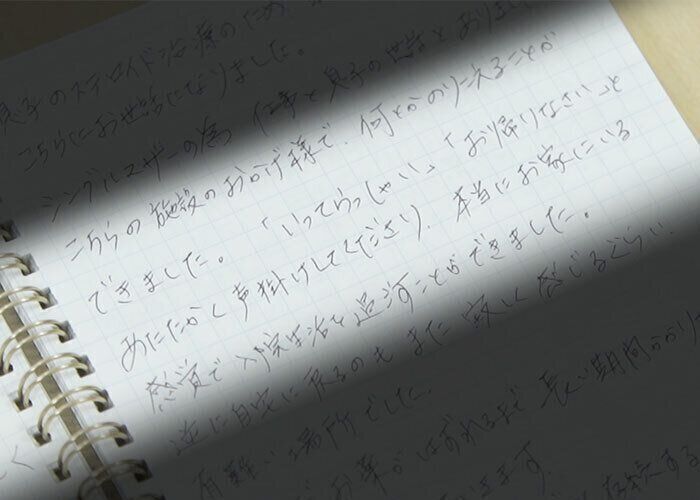 息子のステロイド治療のため、
こちらにお世話になりました。
シングルマザーの為 仕事と息子の世話とあります
こちらの施設のおかげ様で、何とかのりこえることが
できました。「いってらっしゃい」「お帰りなさい」と
あたたかく声掛けしてくださり、本当にお家にいる
感覚で入院生活を過ごすことができました。
逆に自宅に戻るのもまた寂しく感じるぐらい、
有難い場所でした。
お薬がはずれるまで長い期間かかり